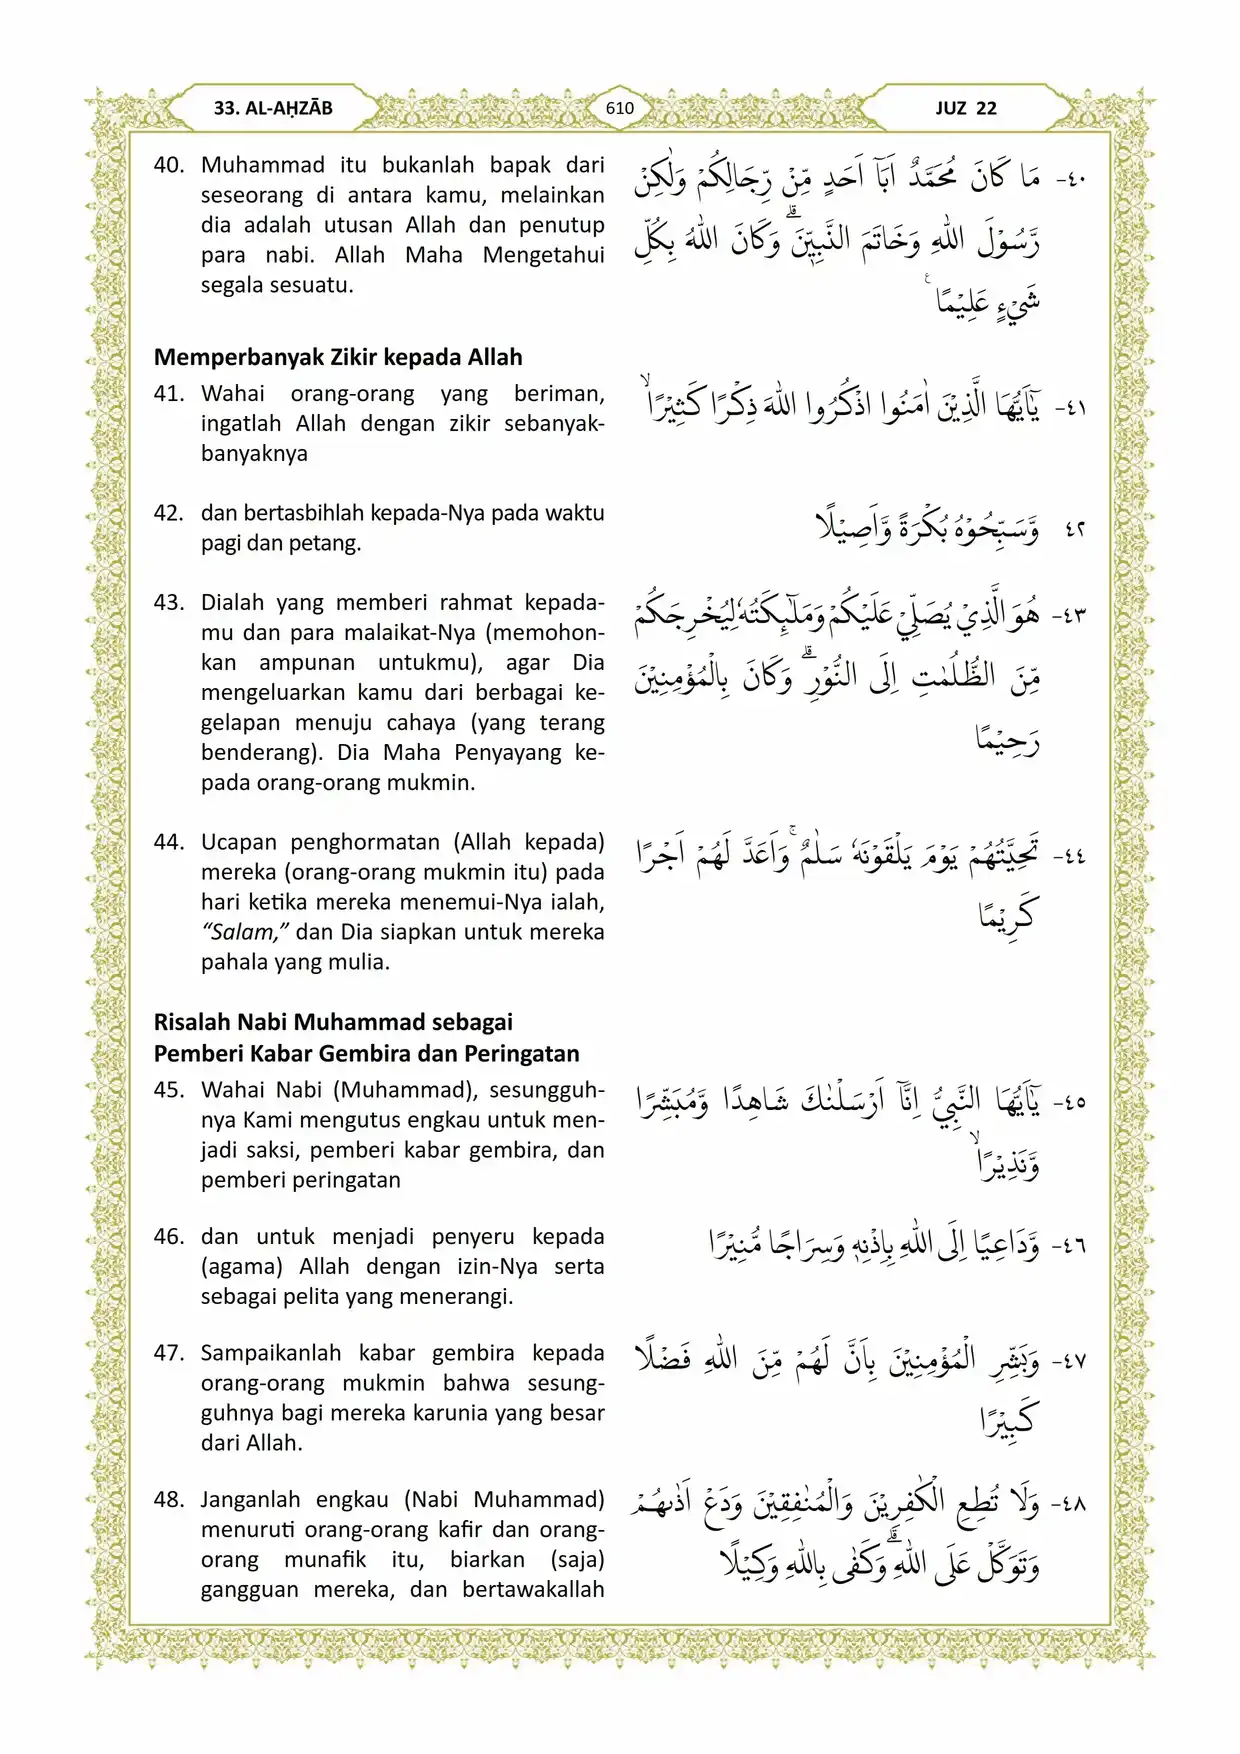 33. AL-AḤZĀB
610
JUZ 22
40. Muhammad itu bukanlah bapak dari
seseorang di antara kamu, melainkan
dia adalah utusan Allah dan penutup
para nabi. Allah Maha Mengetahui
segala sesuatu.
٤٠- مَا كَانَ مُحَمَّدٌ اَبَآ اَحَدٍ مِّنْ رِّجَالِكُمْ وَلٰكِنْ
رَّسُوْلَ اللّٰهِ وَخَاتَمَ النَّبِيّٖنَۗ وَكَانَ اللّٰهُ بِكُلِّ
شَيْءٍ عَلِيْمًا ࣖ
Memperbanyak Zikir kepada Allah
41. Wahai orang-orang yang beriman,
ingatlah Allah dengan zikir sebanyak-
banyaknya
٤١- يٰٓاَيُّهَا الَّذِيْنَ اٰمَنُوا اذْكُرُوا اللّٰهَ ذِكْرًا كَثِيْرًاۙ
42. dan bertasbihlah kepada-Nya pada waktu
pagi dan petang.
٤٢ وَّسَبِّحُوْهُ بُكْرَةً وَّاَصِيْلًا
43. Dialah yang memberi rahmat kepada-
mu dan para malaikat-Nya (memohon-
kan ampunan untukmu), agar Dia
mengeluarkan kamu dari berbagai ke-
gelapan menuju cahaya (yang terang
benderang). Dia Maha Penyayang ke-
pada orang-orang mukmin.
٤٣- هُوَ الَّذِيْ يُصَلِّيْ عَلَيْكُمْ وَمَلٰۤىِٕكَتُهٗ لِيُخْرِجَكُمْ
مِّنَ الظُّلُمٰتِ اِلَى النُّوْرِۗ وَكَانَ بِالْمُؤْمِنِيْنَ
رَحِيْمًا
44. Ucapan penghormatan (Allah kepada)
mereka (orang-orang mukmin itu) pada
hari ketika mereka menemui-Nya ialah,
“Salam,” dan Dia siapkan untuk mereka
pahala yang mulia.
٤٤- تَحِيَّتُهُمْ يَوْمَ يَلْقَوْنَهٗ سَلٰمٌ ۚوَاَعَدَّ لَهُمْ اَجْرًا
كَرِيْمًا
Risalah Nabi Muhammad sebagai
Pemberi Kabar Gembira dan Peringatan
45. Wahai Nabi (Muhammad), sesungguh-
nya Kami mengutus engkau untuk men-
jadi saksi, pemberi kabar gembira, dan
pemberi peringatan
٤٥- يٰٓاَيُّهَا النَّبِيُّ اِنَّآ اَرْسَلْنٰكَ شَاهِدًا وَّمُبَشِّرًا
وَّنَذِيْرًاۙ
46. dan untuk menjadi penyeru kepada
(agama) Allah dengan izin-Nya serta
sebagai pelita yang menerangi.
٤٦- وَّدَاعِيًا اِلَى اللّٰهِ بِاِذْنِهٖ وَسِرَاجًا مُّنِيْرًا
47. Sampaikanlah kabar gembira kepada
orang-orang mukmin bahwa sesung-
guhnya bagi mereka karunia yang besar
dari Allah.
٤٧- وَبَشِّرِ الْمُؤْمِنِيْنَ بِاَنَّ لَهُمْ مِّنَ اللّٰهِ فَضْلًا
كَبِيْرًا
48. Janganlah engkau (Nabi Muhammad)
menuruti orang-orang kafir dan orang-
orang munafik itu, biarkan (saja)
gangguan mereka, dan bertawakallah
٤٨- وَلَا تُطِعِ الْكٰفِرِيْنَ وَالْمُنٰفِقِيْنَ وَدَعْ اَذٰىهُمْ
وَتَوَكَّلْ عَلَى اللّٰهِۗ وَكَفٰى بِاللّٰهِ وَكِيْلًا